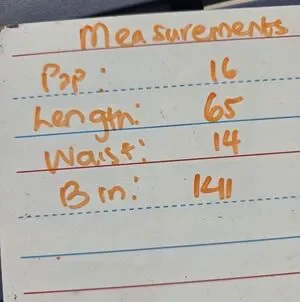 Measurements
P2P: 16
Length: 65
Waist: 14
B in: 141